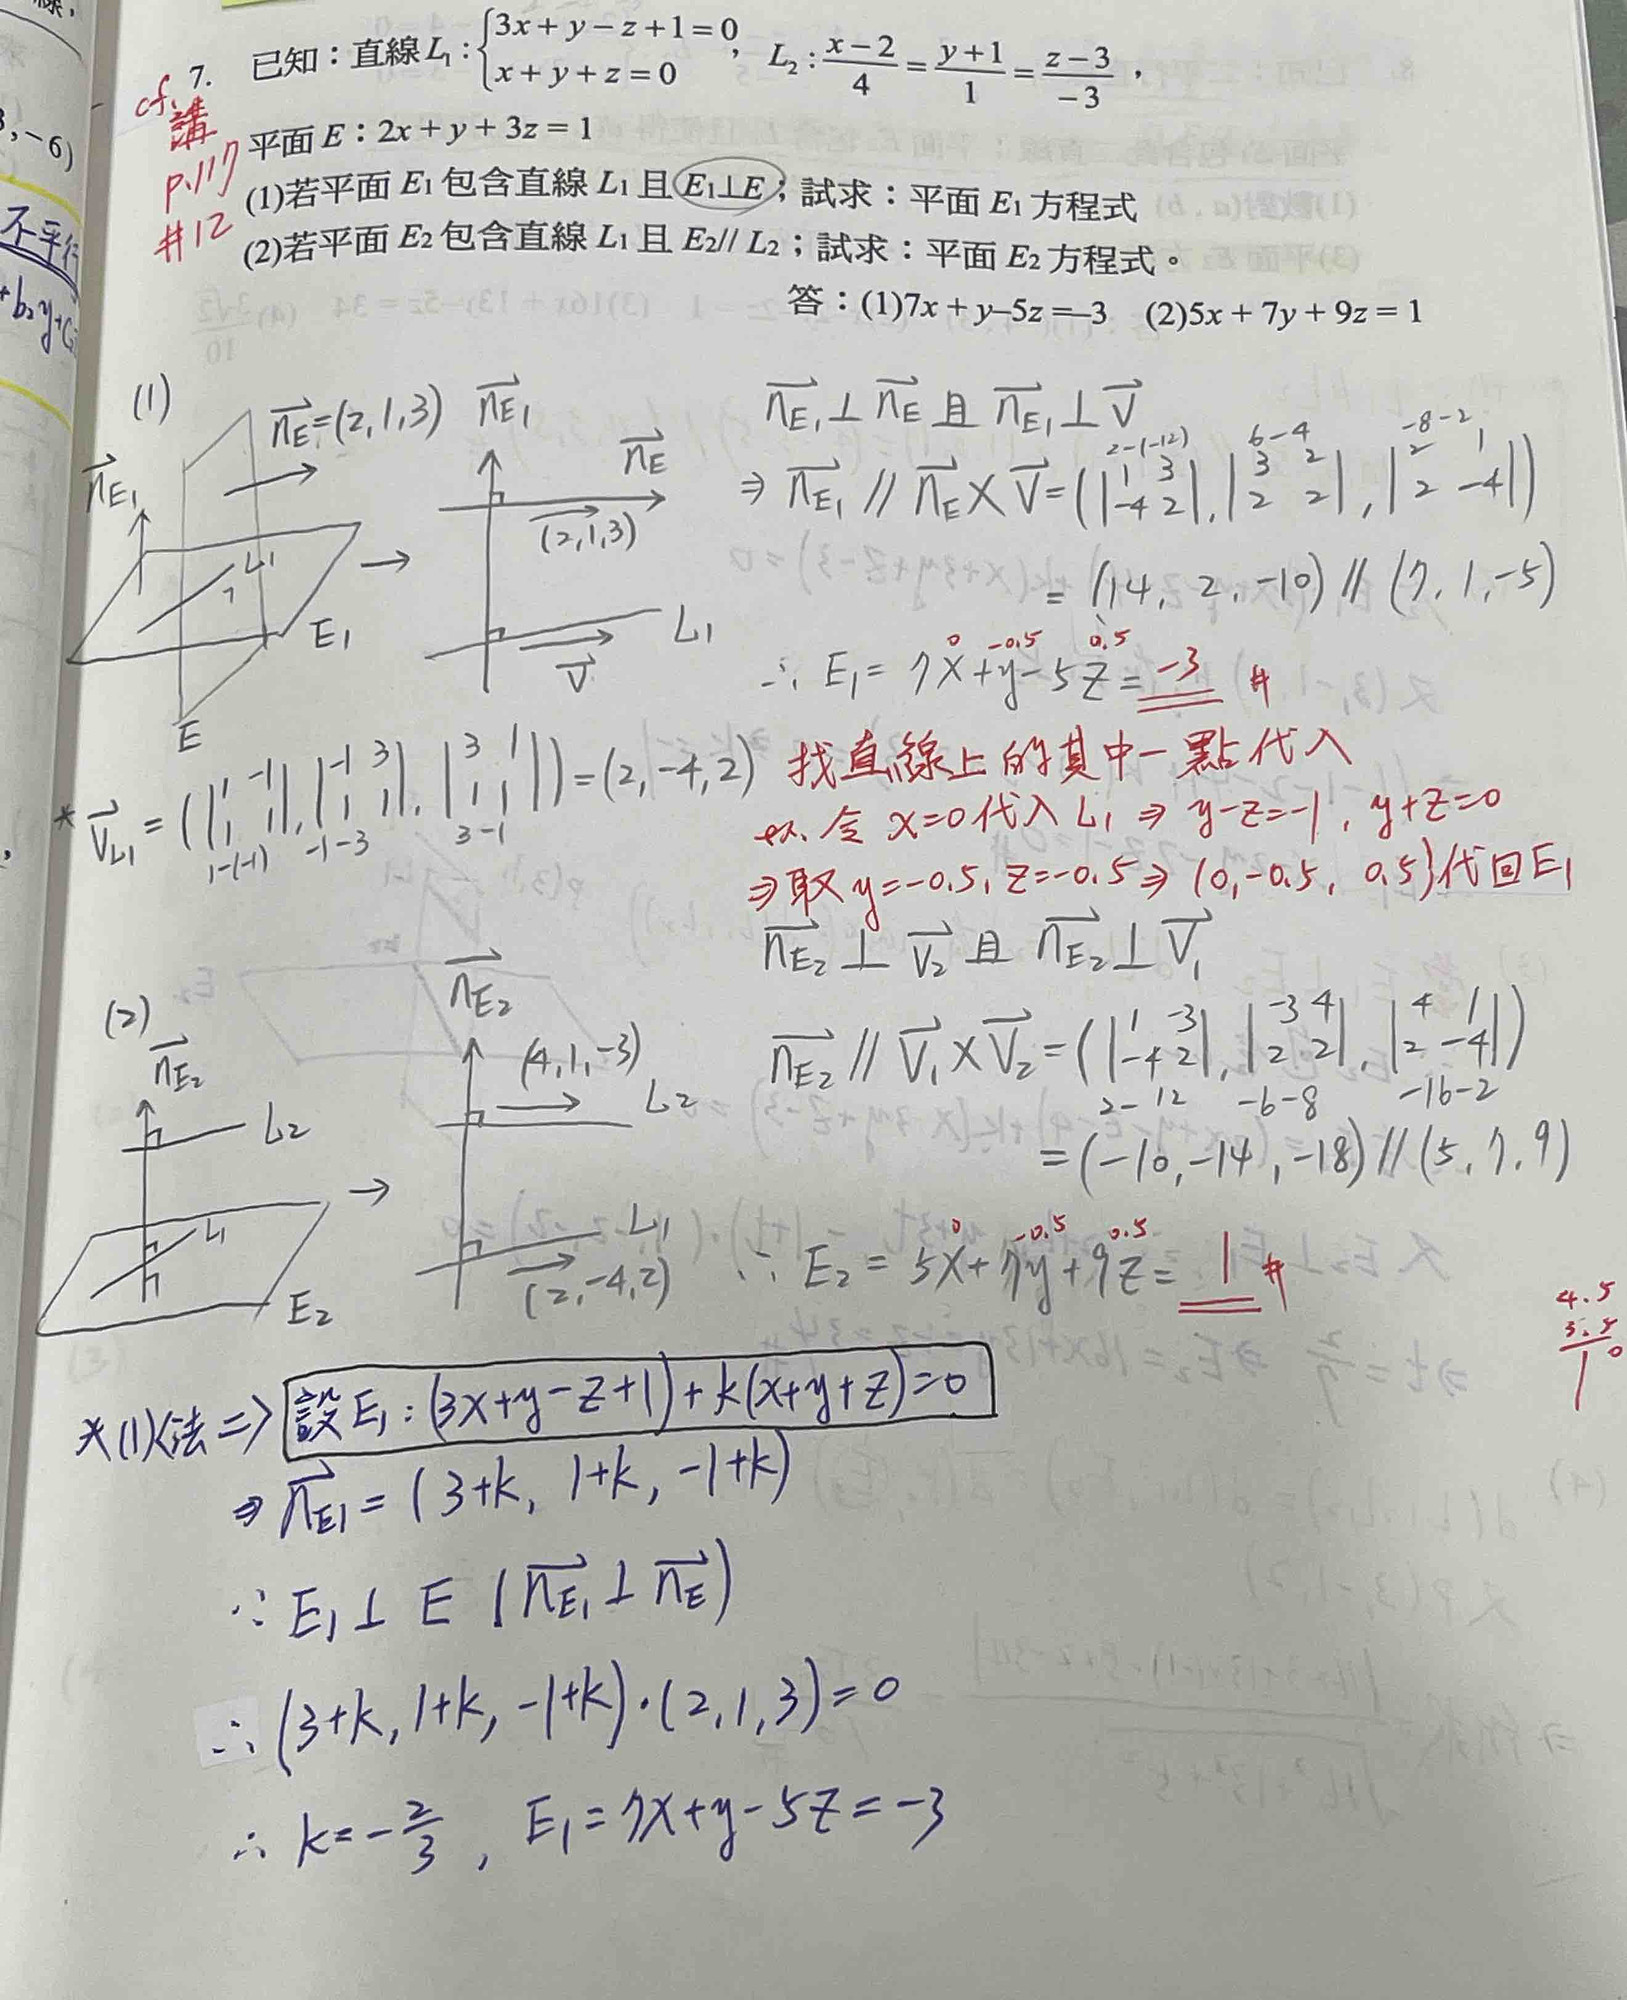 7. 已知：直線 L₁ : { 3x + y − z + 1 = 0, x + y + z = 0 , L₂ : (x − 2)/4 = (y + 1)/1 = (z − 3)/−3 ，
cf. 講
p.117
#12
平面 E：2x + y + 3z = 1
(1)若平面 E₁ 包含直線 L₁ 且 E₁⊥E；試求：平面 E₁ 方程式
(2)若平面 E₂ 包含直線 L₁ 且 E₂// L₂；試求：平面 E₂ 方程式。
答：(1)7x + y–5z =–3 (2)5x + 7y + 9z = 1
, −6)
不平行
+b₂y+C
(1)
n⃗E = (2,1,3)
n⃗E₁
L₁
E₁
E
→
n⃗E₁
n⃗E
(2,1,3)
L₁
v⃗
n⃗E₁ ⊥ n⃗E 且 n⃗E₁ ⊥ v⃗
2-(-12) 6-4 -8-2
⇒ n⃗E₁ // n⃗E × v⃗ = ( |1 3; -4 2|, |3 2; 2 2|, |2 1; 2 -4| )
= (14, 2, -10) // (7, 1, -5)
0 -0.5 0.5
∴ E₁ = 7x+y-5z = -3 #
* v⃗L₁ = ( |1 -1; 1 1|, |-1 3; 1 1|, |3 1; 1 1| ) = (2, -4, 2)
1-(-1) -1-3 3-1
找直線上的其中一點代入
令 x=0 代入 L₁ ⇒ y-z=-1, y+z=0
⇒ 取 y=-0.5, z=-0.5 ⇒ (0, -0.5, 0.5) 代回 E₁
(2)
n⃗E₂
L₂
L₁
E₂
→
n⃗E₂
(4,1,-3)
L₂
L₁
(2,-4,2)
n⃗E₂ ⊥ v⃗₂ 且 n⃗E₂ ⊥ v⃗₁
n⃗E₂ // v⃗₁ × v⃗₂ = ( |1 -3; -4 2|, |-3 4; 2 2|, |4 1; 2 -4| )
2-12 -6-8 -16-2
= (-10, -14, -18) // (5, 7, 9)
0 -0.5 0.5
∴ E₂ = 5x+7y+9z = 1 #
4.5
3.5
1 0
*(1)<法=> 設 E₁ : (3x+y-z+1) + k(x+y+z) = 0
⇒ n⃗E₁ = (3+k, 1+k, -1+k)
∵ E₁ ⊥ E (n⃗E₁ ⊥ n⃗E)
∴ (3+k, 1+k, -1+k)·(2,1,3) = 0
∴ k = -2/3 , E₁ = 7x+y-5z = -3